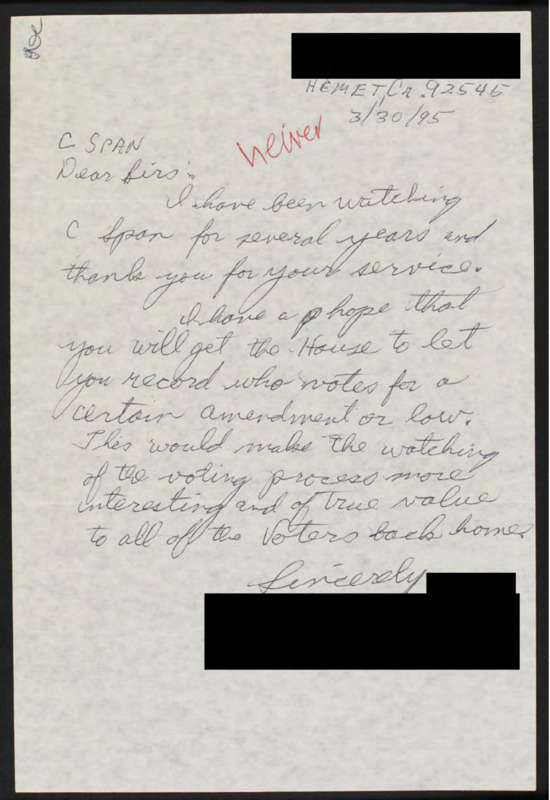 HEMET, Ca. 92545
3/30/95
C SPAN
Dear Sirs:
I have been watching
C Span for several years and
thank you for your service.
I have a hope that
you will get the House to let
you record who votes for a
certain amendment or law.
This would make the watching
of the voting process more
interesting and of true value
to all of the Voters back home.
Sincerely